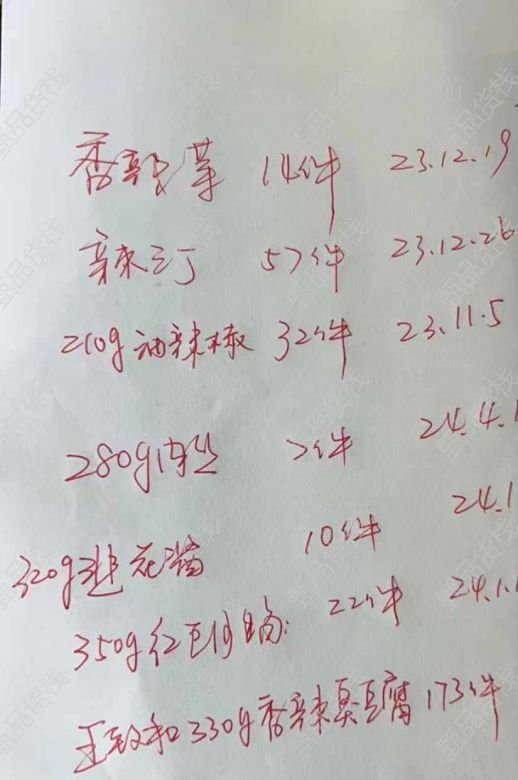 香辣菜 14件 23.12.19
辣三丁 57件 23.12.26
210g油辣椒 32件 23.11.5
280g 2件 24.4.1
320g 10件 24.1
350g红 22件 24.1.1
王致和330g香辣臭豆腐173件